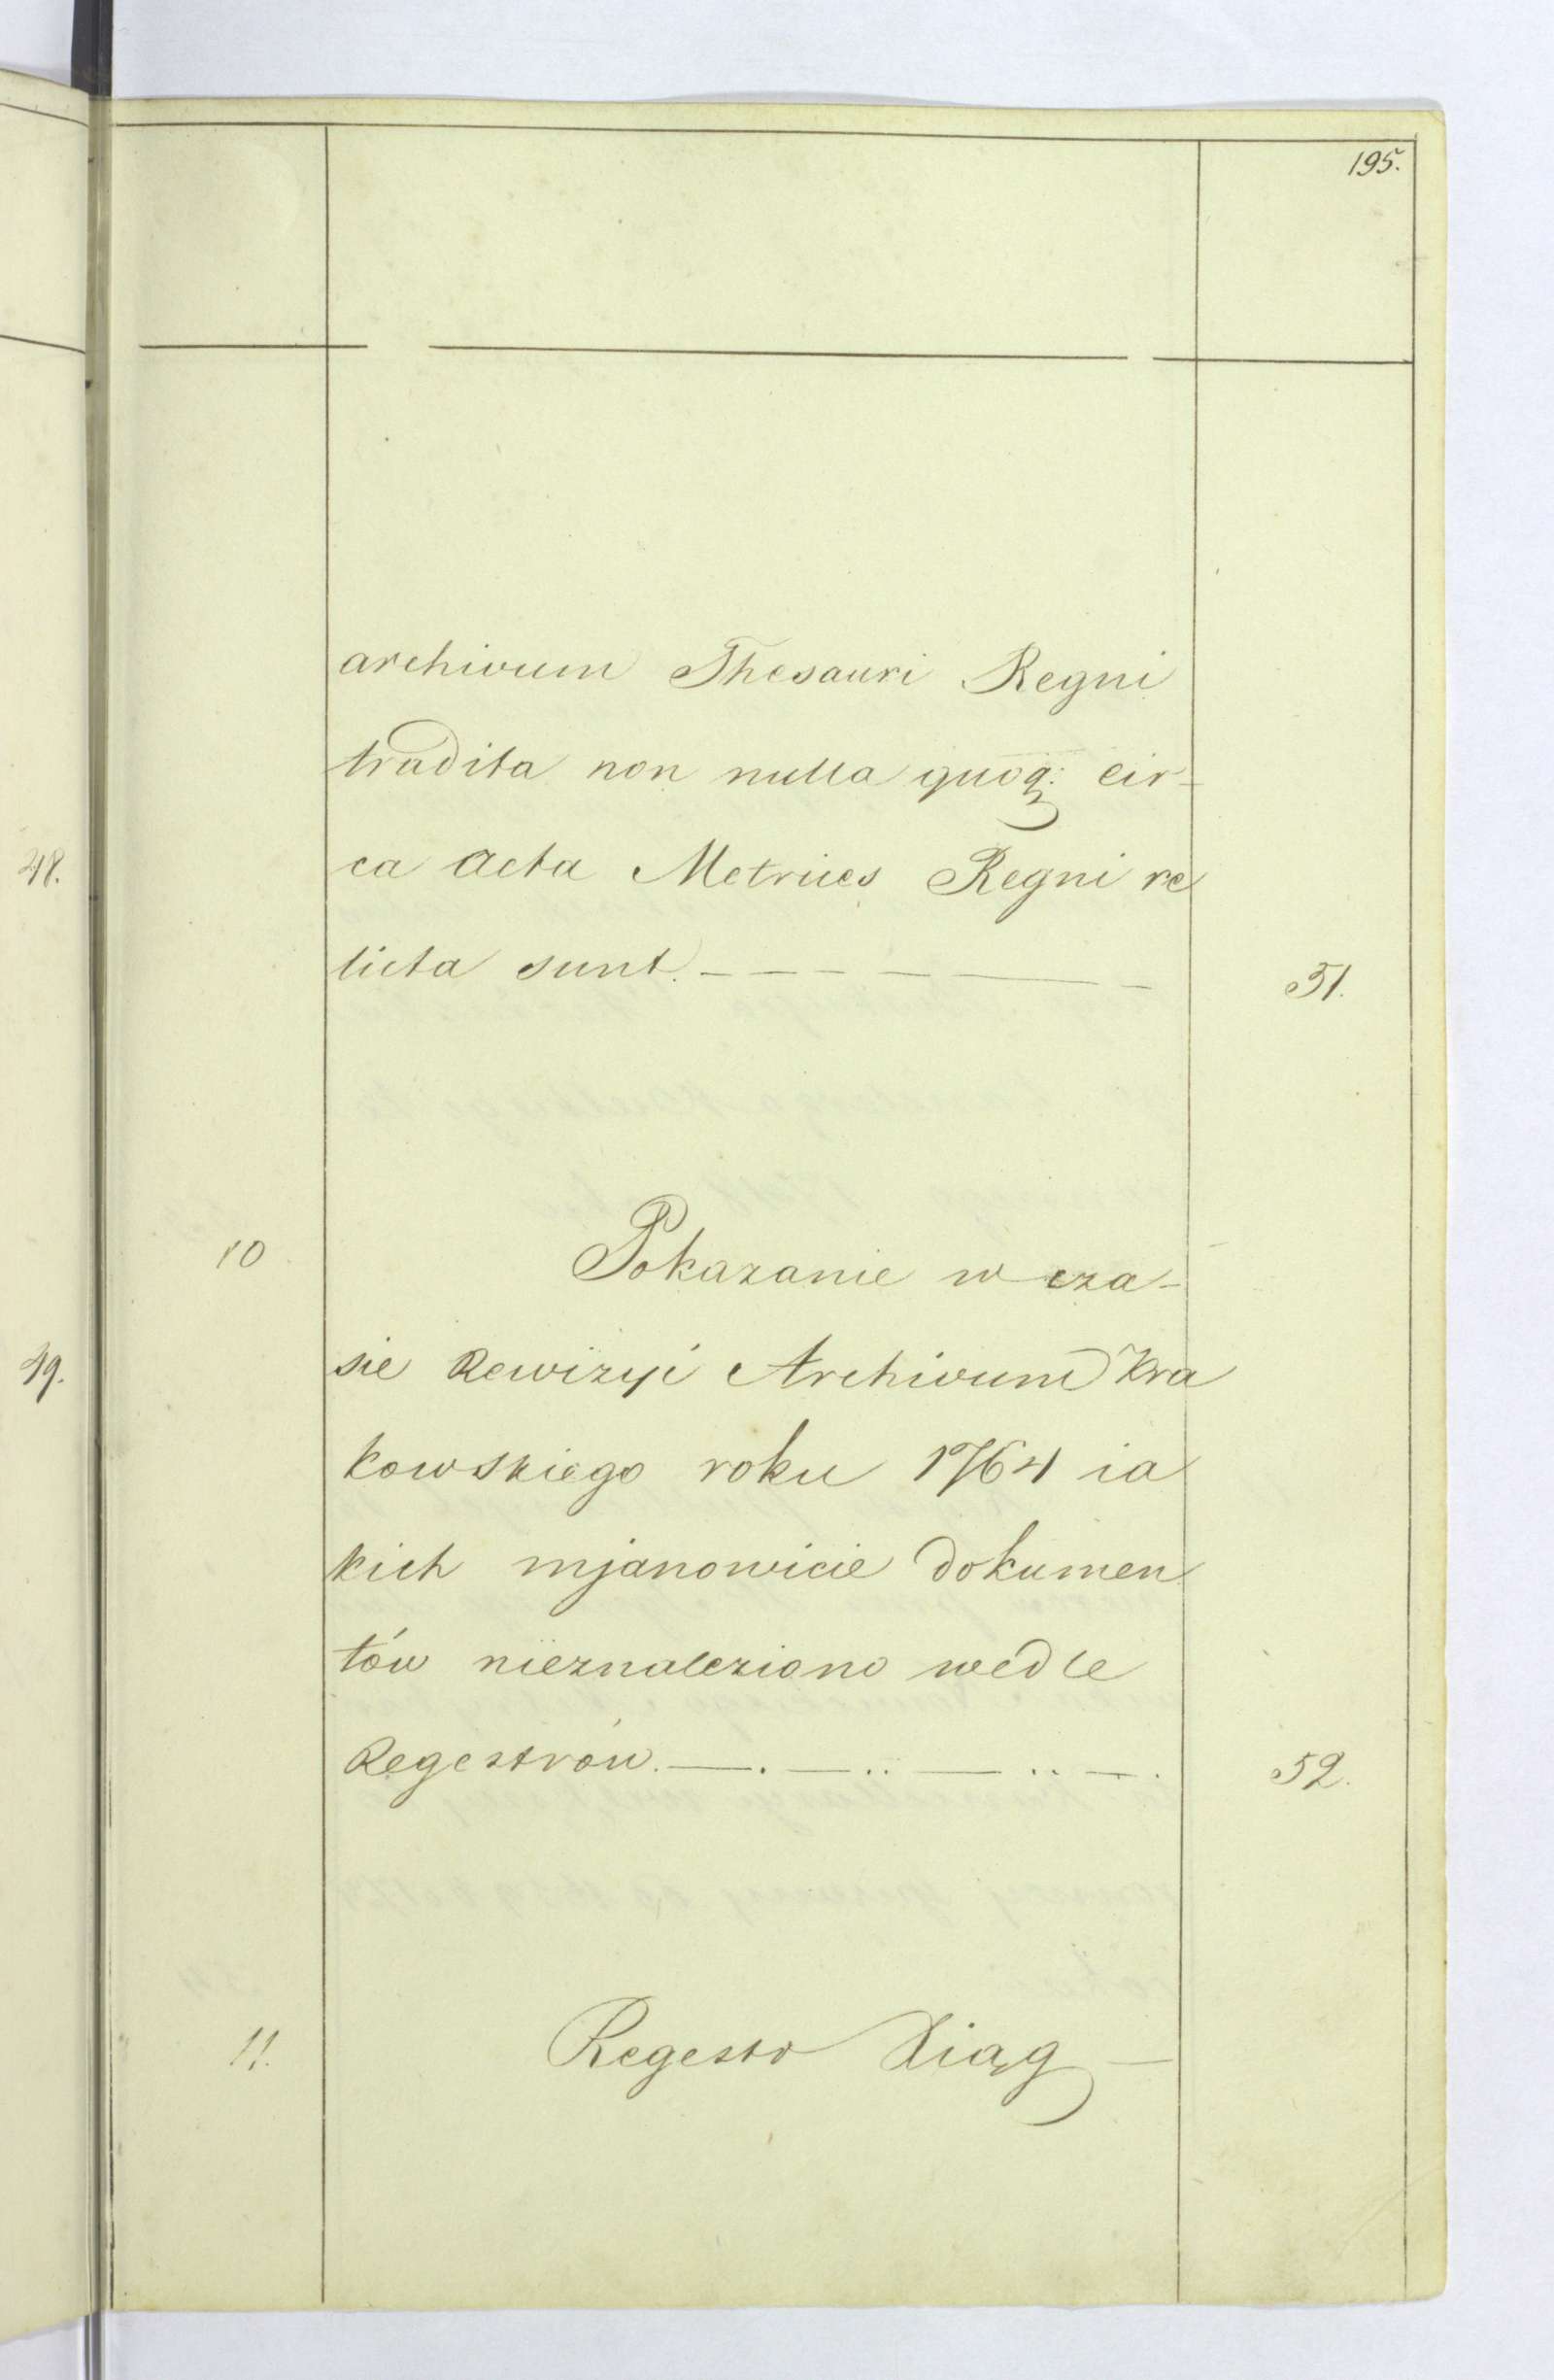 195.
archivum Thesauri Regni
tradita non nulla quoq: cir-
48.
ca acta Metrices Regni re
licta sunt. – – – – — –
51.
10
Pokazanie w cza-
sie Rewizyi Archivum Kra
49.
kowskiego roku 1764 ia
kich mjanowicie dokumen
tów nieznaleziono wedle
Regestrów. —. —.. — .. —.
52.
11.
Regestr Xiąg —